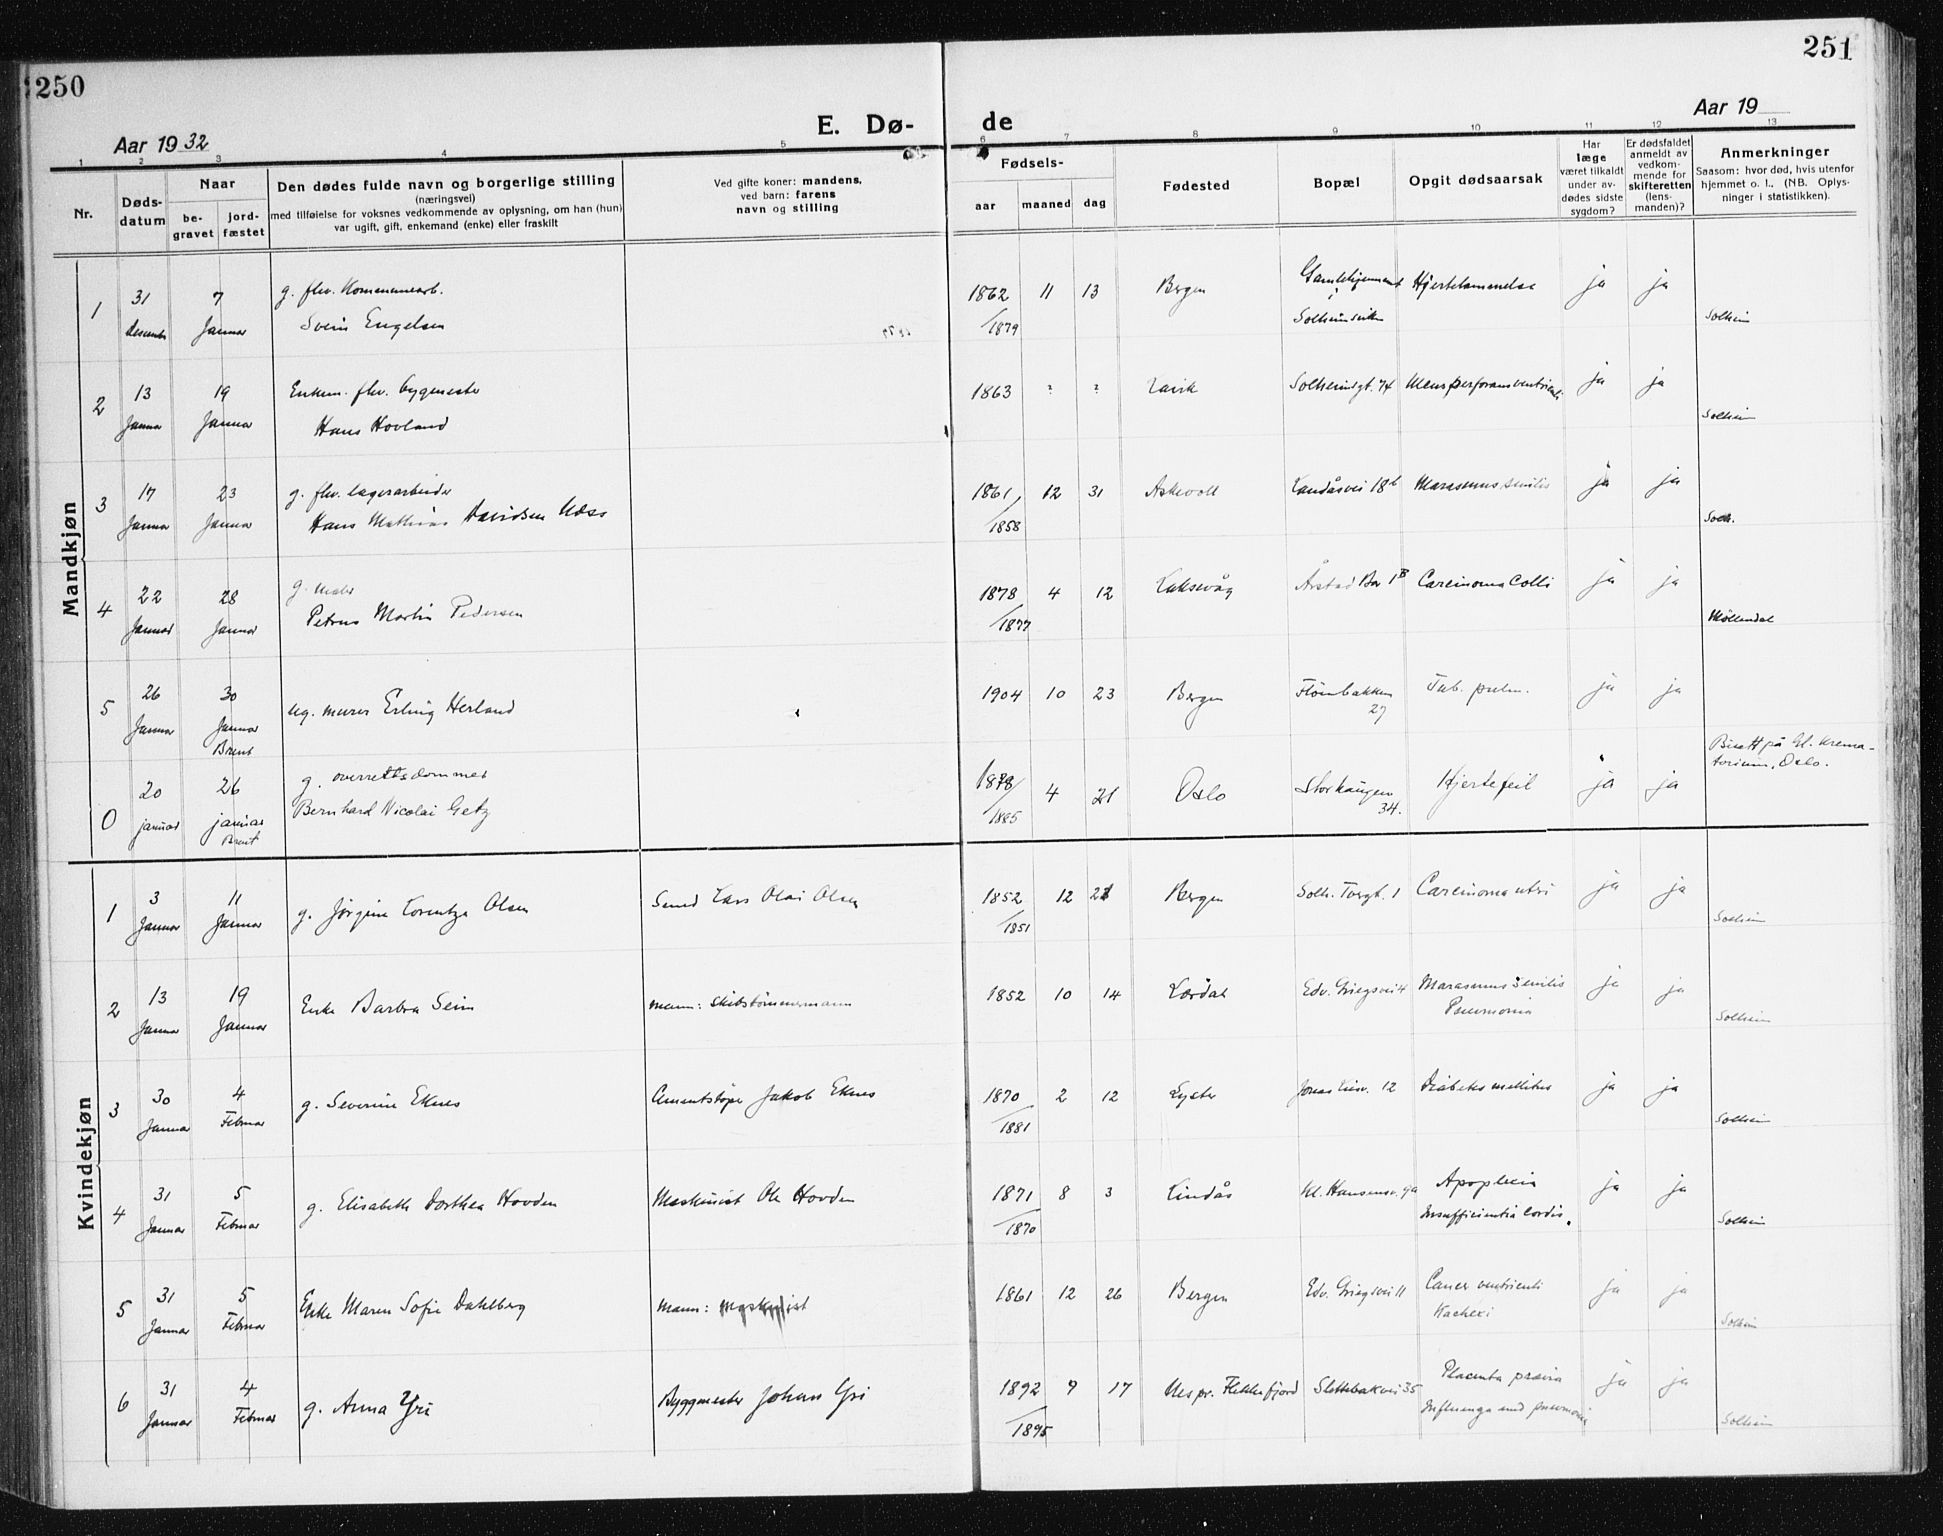 250
251
Aar 1932
E. Dø-
de
Aar 19
1 2 3 4 5 6 7 8 9 10 11 12 13
Nr.
Døds-
datum
Naar
be-
gravet
jord-
fæstet
Den dødes fulde navn og borgerlige stilling
(næringsvei)
med tilføielse for voksnes vedkommende av oplysning, om han (hun)
var ugift, gift, enkemand (enke) eller fraskilt
Ved gifte koner: mandens,
ved barn: farens
navn og stilling
Fødsels-
aar maaned dag
Fødested
Bopæl
Opgit dødsaarsak
Har
læge
været tilkaldt
under av-
dødes sidste
sygdom?
Er dødsfaldet
anmeldt av
vedkom-
mende for
skifteretten
(lens-
manden)?
Anmerkninger
Saasom: hvor død, hvis utenfor
hjemmet o. l.. (NB. Oplys-
ninger i statistikken).
Mandkjøn
1 31 7 g. fhv. Kommunearb. 1862 11 13 Bergen Gamlehjemmet Hjertelammelse ja ja
Januar Svein Engelsen /1879 i Solheimsviken Solheim
2 13 19 Enkem. fhv. bygmester 1863 ? ? Lavik Solheimsgt. 74 Ulcus perforans ventriculi ja ja
Januar Januar Hans Hovland Solheim
3 17 23 g. fhv. lagerarbeider 1861 12 31 Askvoll Landåsvei 18b Marasmus senilis ja ja
Januar Januar Hans Mathias Davidsen Næss /1858 Solh.
4 22 28 g. maler 1878 4 12 Laksevåg Årstad Bar 1B Carcinoma Colli ja ja
Januar Januar Petrus Martin Pedersen /1877 Møllendal
5 26 30 ug. murer Erling Herland 1904 10 23 Bergen Fløenbakken Tub. pulm. ja ja
Januar Januar 27
Brent
0 20 26 g. overrettsdommer 4 21 Oslo Storhaugen Hjertefeil ja ja Bisatt på Gl. Krema-
januar januar Bernhard Nicolai Getz /1885 34. torium, Oslo.
Brent
Kvindekjøn
1 3 11 g. Jørgine Lorentze Olsen Smed Lars Olai Olsen 1852 12 Bergen Solh. Torgt. 1 Carcinoma uteri ja ja
Januar Januar /1851 Solheim
2 13 19 Enke Barbra Seim mann: skibstømmermann 1852 10 14 Lærdal Edv. Griegsvei 4 Marasmus senilis ja ja
Januar Januar Pneumonia Solheim
3 30 4 g. Severine Eknes Cementstøper Jakob Eknes 1870 2 12 Lyster Jonas Liesv. 12 Diabetes mellitus ja ja
Januar Februar /1881 Solheim
4 31 5 g. Elisabeth Dorthea Hovden Maskinist Ole Hovden 1871 8 3 Lindås Kl. Hansensv. 9a Apoplexia ja ja
Januar Februar /1870 Insufficientia Cordis. Solheim
5 31 5 Enke Maren Sofie Dahlberg Mann: maskinist 1861 12 26 Bergen Edv. Griegsvei 11 Cancer ventriculi ja ja
Januar Februar Kachexi Solheim
6 31 4 g. Anna Yri Byggmester Johan Yri 1892 9 17 Nes pr. Flekkefjord Slettebakvei 35 Placenta prævia ja ja
Januar Februar /1895 Influenza med pneumonia Solheim